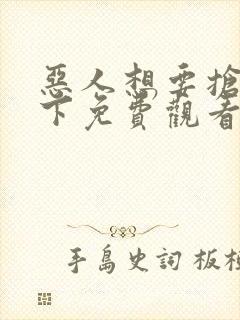 惡人想要搶
下免費觀看
手島史詞 板橋